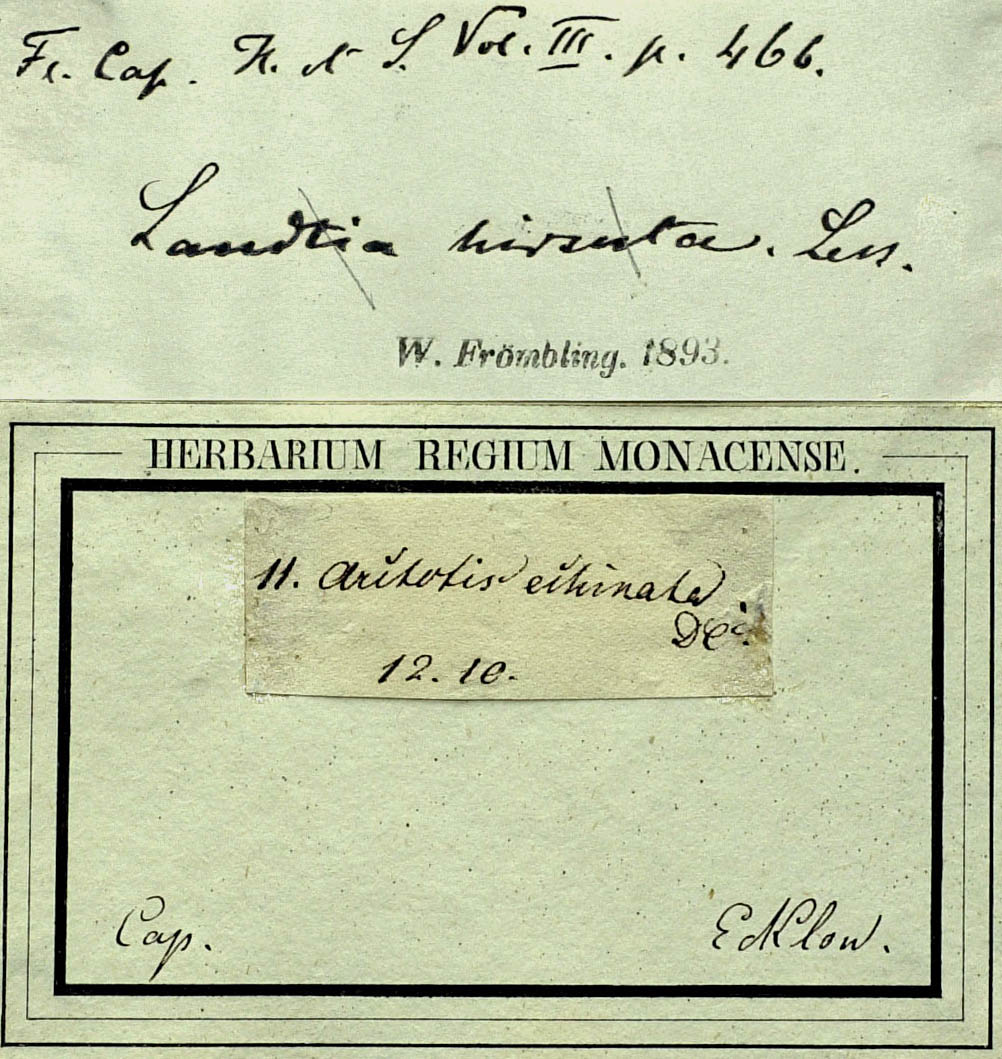 Fl. Cap. H. et S. Vol. III. p. 466.
Landtia hirsuta. Less.
W. Frömbling. 1893.
HERBARIUM REGIUM MONACENSE.
11. Arctotis echinata
DC.
12. 10.
Cap. Ecklon.